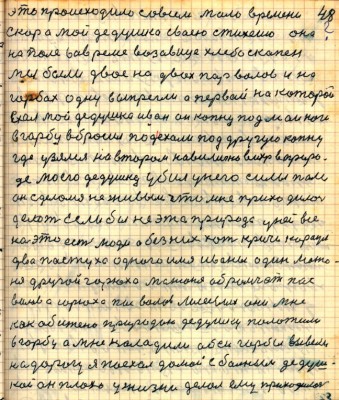 это происходило совсем мало времени 48
скора мой дедушка сваею стихею она
на поле вовреме возавице хлебо скапен
мы были двое на двох пар валов и на
гарбах одну выпрегли а первай на каторой
ехал мой дедушка иван ан копну подмал ноги
в гарбу вбросил подехали под другую копну
где узялся на втором
де моего дедушку убил унего силы пали
он сделался не живым что мне приходилос
делат если бы не эта природа у ней все
на это ест люди а без них хот кричи караул
два пастуха одного имя иваны один мото
ня другой гарюха
валв а гароха пас валов они мне
как обижено природаю дедушку положили
в гарбу а мне наладили обси гарбы вывели
на дарогу я поехал домой с болным дедуш-
кой ан плохо ужизни делал ему приходилос